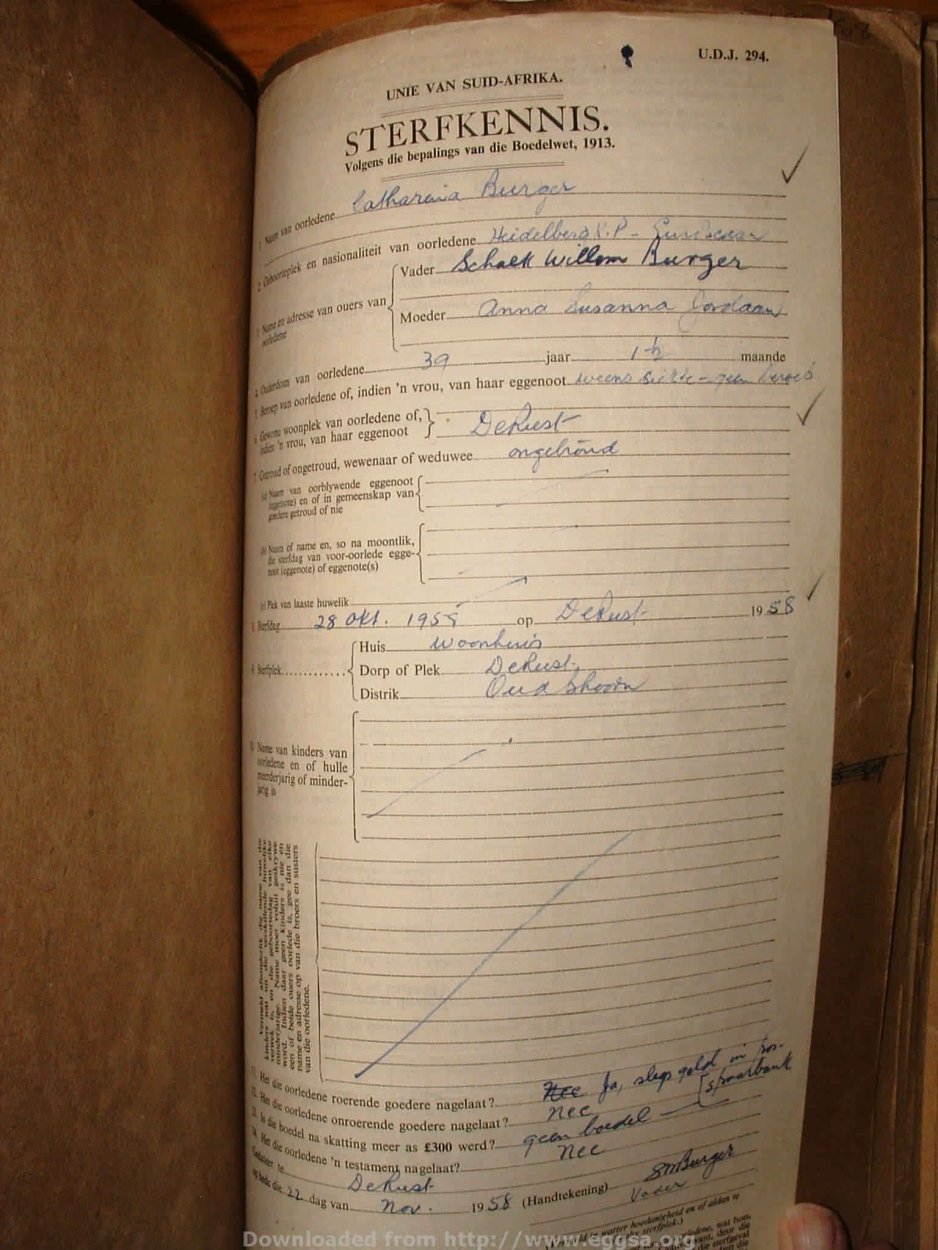 U.D.J. 294.
UNIE VAN SUID-AFRIKA.
STERFKENNIS.
Volgens die bepalings van die Boedelwet, 1913.
1 Naam van oorledene Catharina Burger
2 Geboorteplek en nasionaliteit van oorledene Heidelberg K.P -
3 Name en adresse van ouers van oorledene
Vader Schalk Willem Burger
Moeder Anna Susanna Jordaan
4 Ouderdom van oorledene 39 jaar 1½ maande
5 Beroep van oorledene of, indien 'n vrou, van haar eggenoot weens siekte - geen beroep
6 Gewone woonplek van oorledene of, indien 'n vrou, van haar eggenoot DeRust
7 Getroud of ongetroud, wewenaar of weduwee ongetroud
(a) Naam van oorblywende eggenoot
(eggenote) en of in gemeenskap van
goedere getroud of nie
(b) Naam of name en, so na moontlik,
die sterfdag van voor-oorlede egge-
noot (eggenote) of eggenote(s)
(c) Plek van laaste huwelik
8 Sterfdag 28 Okt. 1958 op DeRust 1958
9 Sterfplek
Huis Woonhuis
Dorp of Plek DeRust.
Distrik Oudtshoorn
10 Name van kinders van
oorledene en of hulle
meerderjarig of minder-
jarig is
name en adresse op van die broers en susters
van die oorledene.
11. Het die oorledene roerende goedere nagelaat? Nee Ja, slegs geld in pos-
spaarbank
12. Het die oorledene onroerende goedere nagelaat? nee
13. Is die boedel na skatting meer as £300 werd? geen boedel
14. Het die oorledene 'n testament nagelaat? Nee
Gedateer te DeRust
op hede die 22 dag van Nov. 1958 (Handtekening) SWBurger
Vader
Downloaded from http://www.eggsa.org